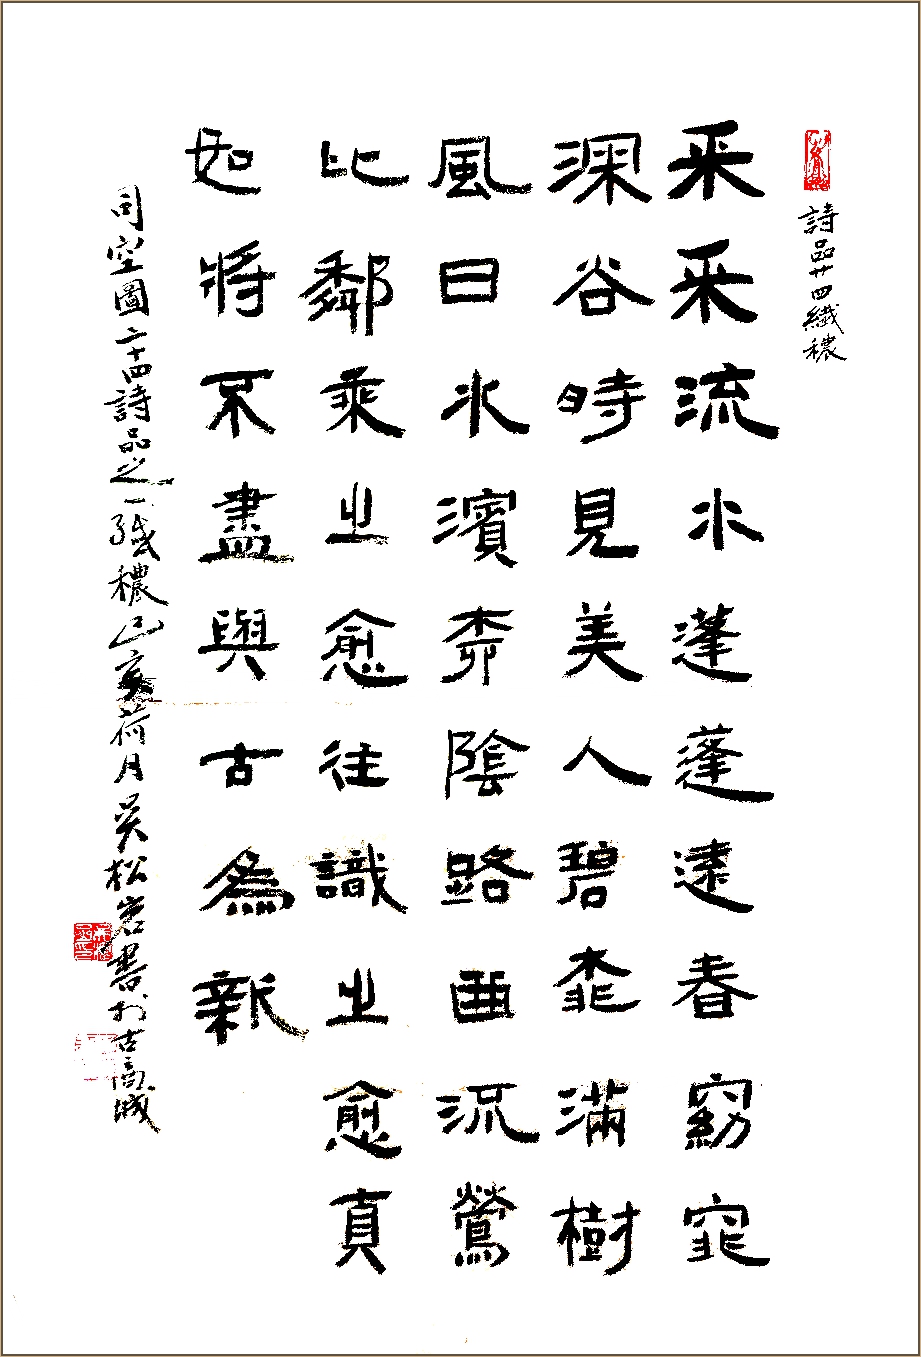 詩品廿四纖穠
采采流水蓬蓬遠春窈窕
深谷時見美人碧桃滿樹
風日水濱柳陰路曲流鶯
比鄰乘之愈往識之愈真
如將不盡與古為新
司空圖二十四詩品之一纖穠己亥荷月吳松岩書於古商城